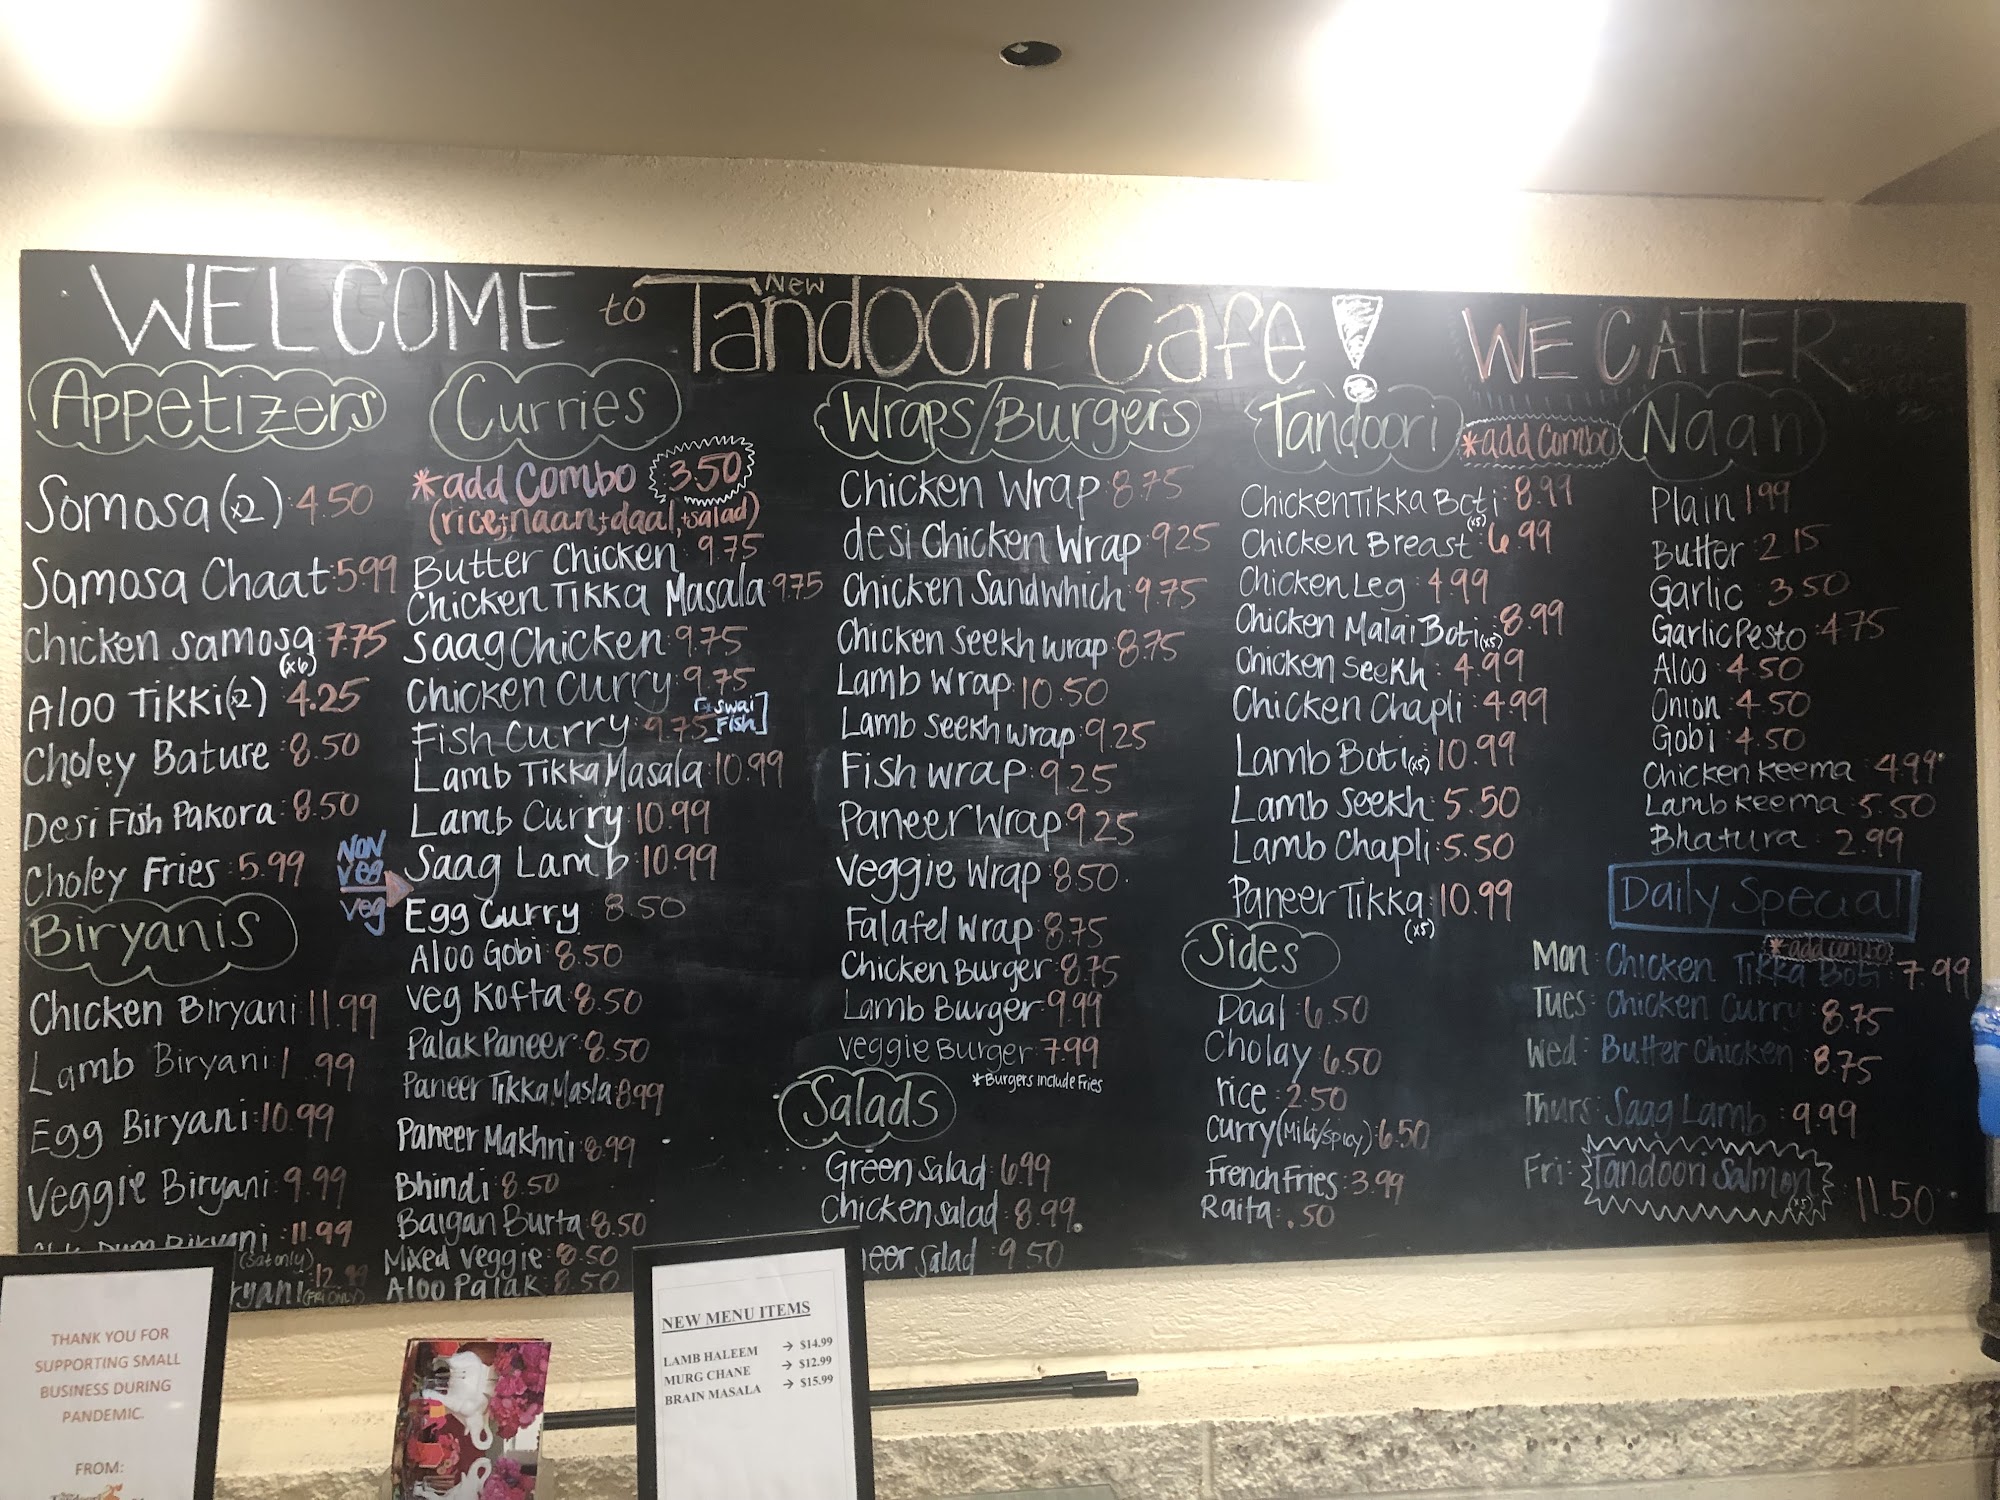 WELCOME to New Tandoori Cafe! WE CATER
Appetizers
Somosa (x2) : 4.50
Samosa Chaat : 5.99
Chicken Samosa : 7.75
(x6)
Aloo Tikki (x2) 4.25
Choley Bature : 8.50
Desi Fish Pakora : 8.50
Choley Fries : 5.99
Biryanis
Chicken Biryani : 11.99
Lamb Biryani : 1 .99
Egg Biryani : 10.99
Veggie Biryani : 9.99
Dum Biryani : 11.99
(Sat only)
ryani : 12.
(FRI ONLY)
Curries
*add Combo 3.50
(rice+naan+daal,+salad)
Butter Chicken : 9.75
Chicken Tikka Masala : 9.75
Saag Chicken : 9.75
Chicken Curry : 9.75
Fish Curry : 9.75 [*Swai Fish]
Lamb Tikka Masala 10.99
Lamb Curry : 10.99
Saag Lamb : 10.99
NON veg
veg
Egg Curry : 8.50
Aloo Gobi : 8.50
Veg Kofta : 8.50
Palak Paneer : 8.50
Paneer Tikka Masla 8.99
Paneer Makhni : 8.99
Bhindi : 8.50
Baigan Burta : 8.50
Mixed Veggie : 8.50
Aloo Palak : 8.50
Wraps/Burgers
Chicken Wrap : 8.75
desi Chicken Wrap : 9.25
Chicken Sandwhich : 9.75
Chicken Seekh Wrap : 8.75
Lamb Wrap : 10.50
Lamb Seekh Wrap : 9.25
Fish Wrap : 9.25
Paneer Wrap 9.25
Veggie Wrap : 8.50
Falafel Wrap : 8.75
Chicken Burger : 8.75
Lamb Burger : 9.99
Veggie Burger : 7.99
*Burgers Include Fries
Salads
Green Salad : 6.99
Chicken Salad : 8.99
neer Salad : 9.50
Tandoori *add Combo
Chicken Tikka Boti : 8.99
(x5)
Chicken Breast : 6.99
Chicken Leg : 4.99
Chicken Malai Boti (x5) : 8.99
Chicken Seekh : 4.99
Chicken Chapli : 4.99
Lamb Boti (x5) 10.99
Lamb Seekh : 5.50
Lamb Chapli : 5.50
Paneer Tikka : 10.99
(x5)
Sides
Daal : 6.50
Cholay : 6.50
rice : 2.50
Curry (Mild/Spicy) : 6.50
French Fries : 3.99
Raita : .50
Naan
Plain 1.99
Butter : 2.15
Garlic : 3.50
Garlic Pesto : 4.75
Aloo : 4.50
Onion : 4.50
Gobi : 4.50
Chicken Keema : 4.99
Lamb Keema : 5.50
Bhatura : 2.99
Daily Special
*add combo
Mon : Chicken Tikka Boti : 7.99
Tues : Chicken Curry : 8.75
Wed : Butter Chicken : 8.75
Thurs : Saag Lamb : 9.99
Fri : Tandoori Salmon (x5) : 11.50
THANK YOU FOR
SUPPORTING SMALL
BUSINESS DURING
PANDEMIC.
FROM:
NEW MENU ITEMS
LAMB HALEEM → $14.99
MURG CHANE → $12.99
BRAIN MASALA → $15.99